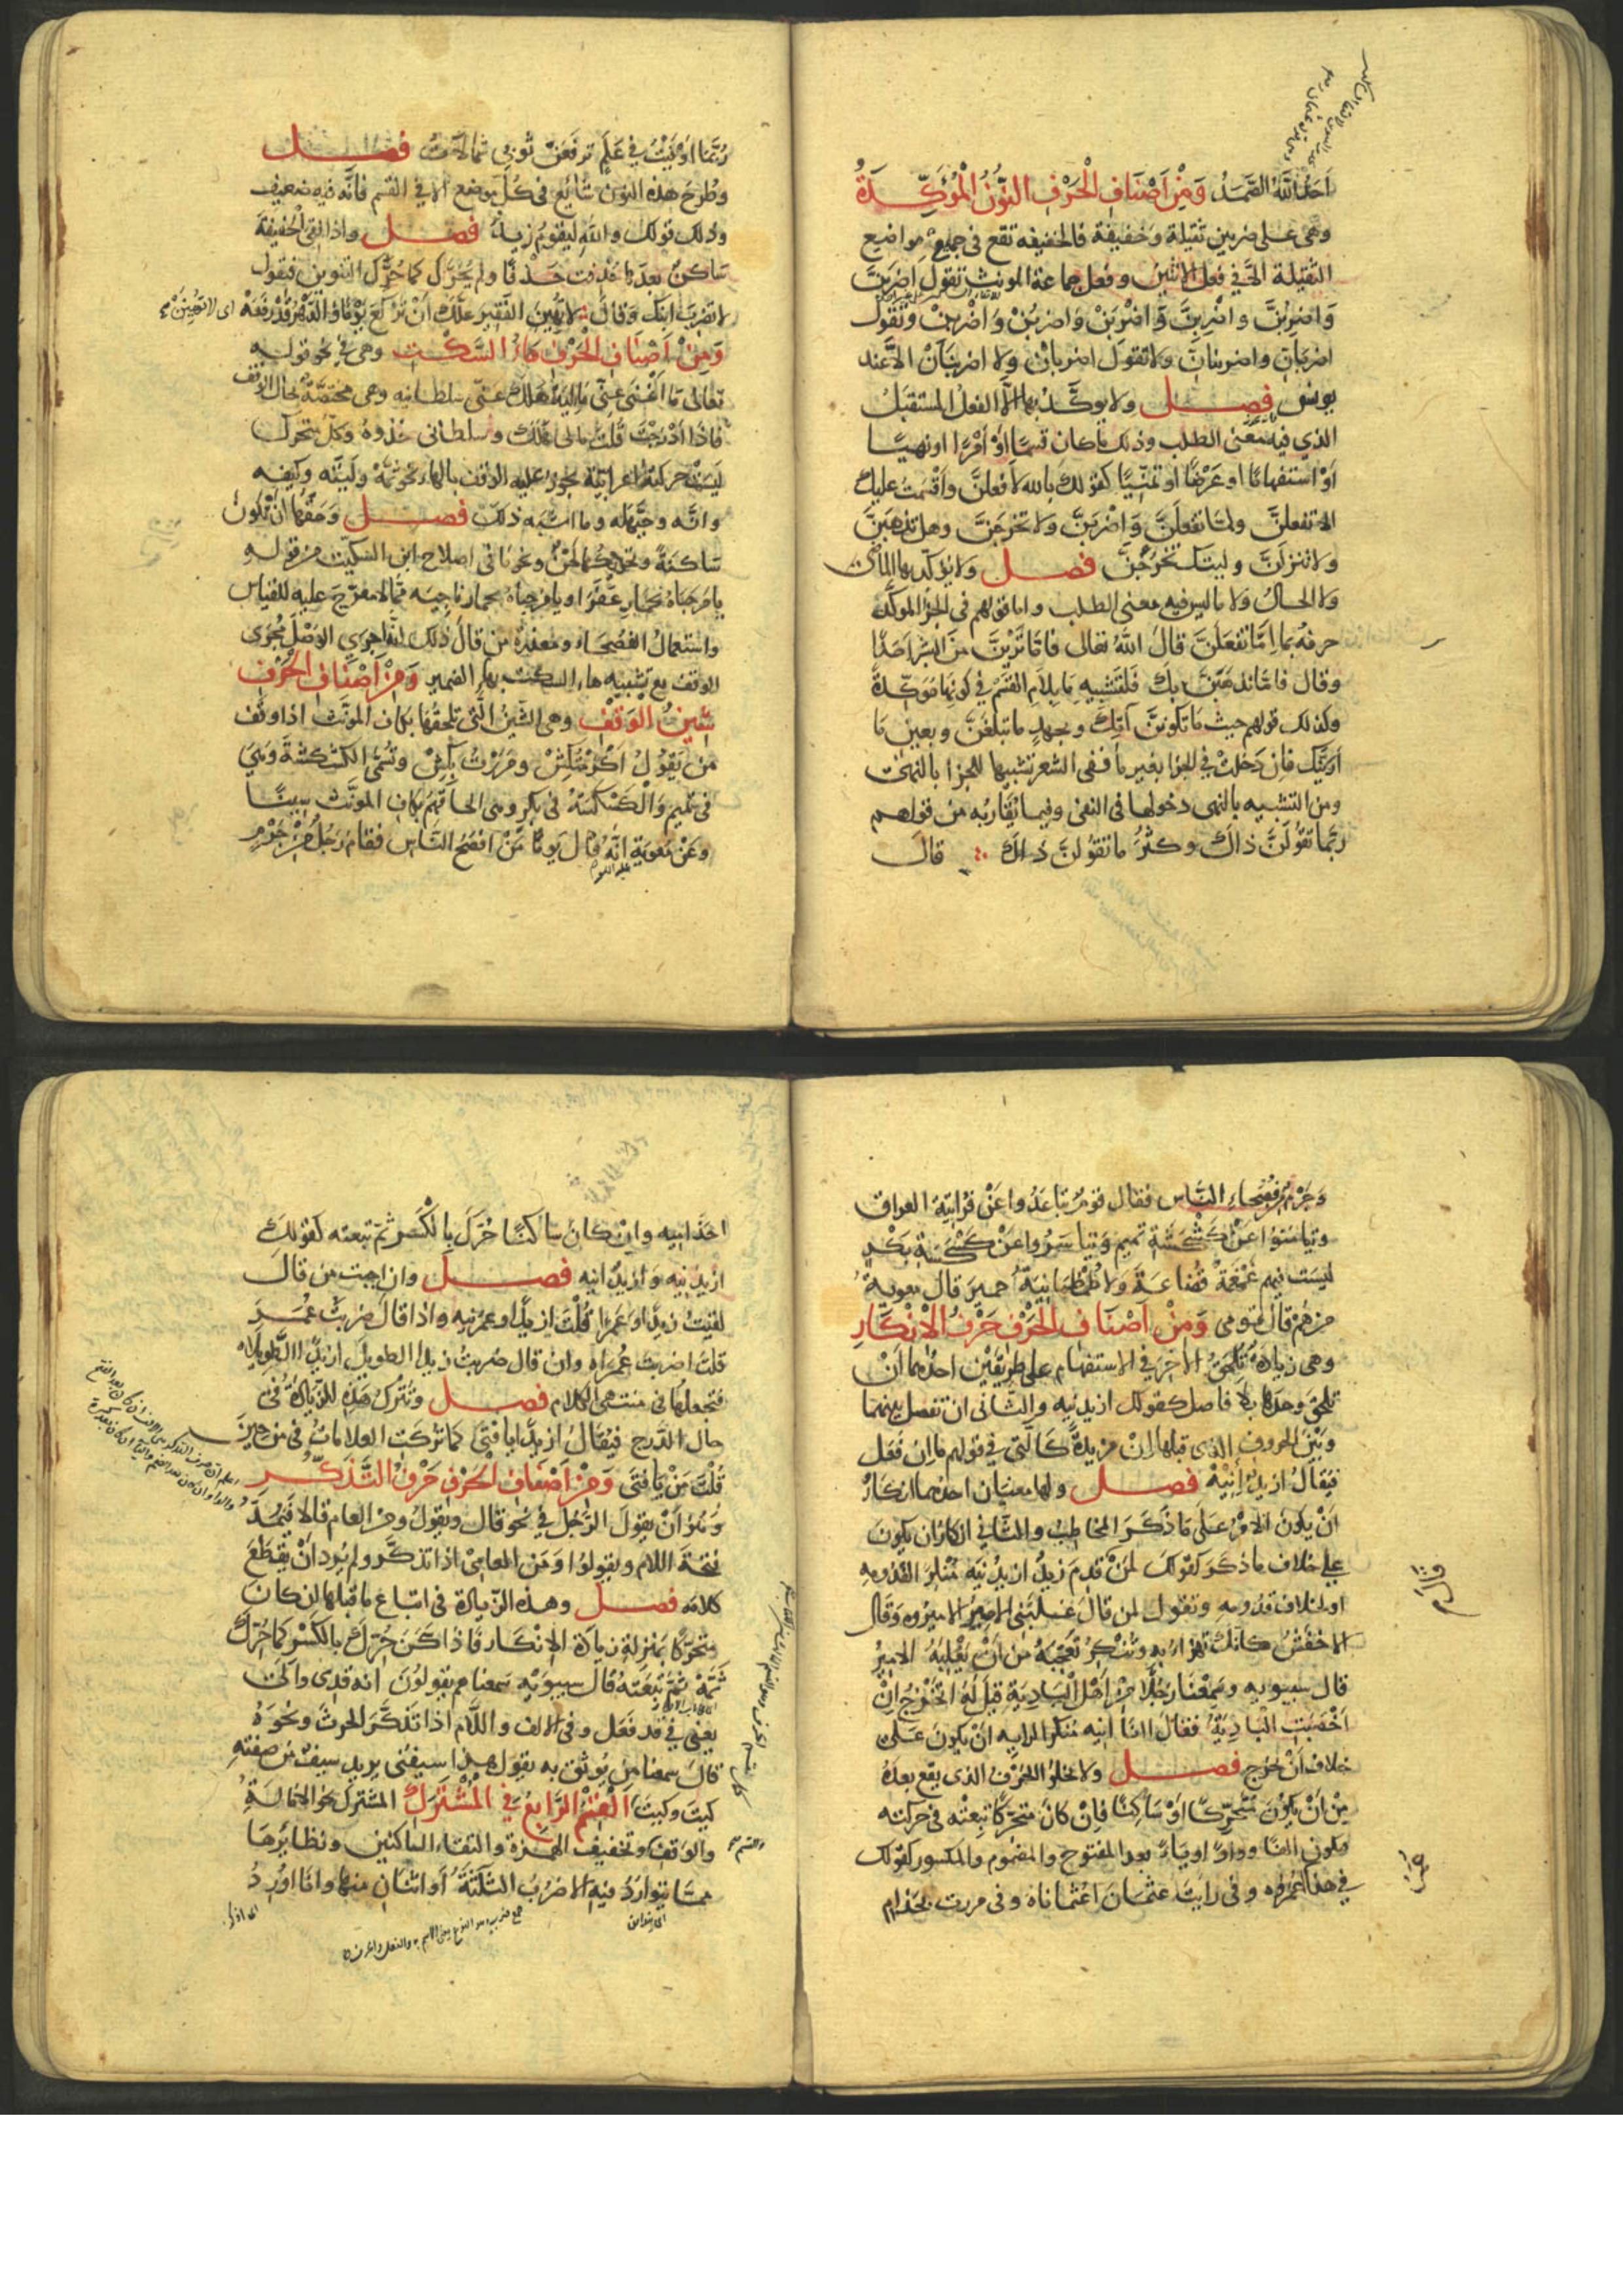 احدن الله الصمد وَمِنْ اَصْنَافِ الْحَرْفِ النُّونُ الْمُؤَكِّدَةُ
وهى على ضربين ثقيلة وخفيفة فالخفيفه تقع فى جميع مواضع
الثقيلة الّا فى فعل الاثنين وفعل جماعة المونث تقول اضربَنَّ
وَاضربُنَّ واضربِنَّ وَاضْرِبَنْ واضربُنْ وَاضربِنْ وتقول
اضربَانِّ واضربنانِّ ولا تقول اضربانْ ولا اضربنَانْ الّا عند
يونس فصل ولا يوكّد بها الّا الفعل المستقبل
الذي فيه معنى الطلب وذلك ما كان قسمًا اَوْ اَمْرًا او نهيًا
اَوْ استفهامًا او عَرْضًا او تمنّيًا كقولك بالله لأفعلنَّ واَقْسَمْتُ عليك
الا تفعلنَّ ولمّا تفعلَنَّ وَاضْرِبَنَّ ولا تخرجَنَّ وهل تذهَبَنَّ
والا تنزلَنَّ وليتك تخرُجَنَّ فصل ولا يؤكّد بها الماضى
ولا الحال ولا ما ليس فيه معنى الطلب واما قولهم فى الجزا الموكّد
حرفُهُ بما اِمَّا تفعَلَنَّ قالَ اللهُ تعالى فامّا تَرَيِنَّ مِنَ البَشَرِ اَحَدًا
وقال فامّا نذهَبَنَّ بك فلتشبيه مَا بلام القَسَم فى كونها مَوَكّدةً
وكذلك قولهم حيث مَا تكونَنَّ آتِكَ وبجهدٍ ما تبلغَنَّ وبعينٍ مَا
اَرَيَنَّك فان دخلتْ فى الجزا بغير مَا ففى الشعر تشبيها للجزا بالنهى
ومن التشبيه بالنهى دخولها فى النفى وفيما يُقاربُه من قولهم
ربّما تقولَنَّ ذاكَ وكثُرَ ما تقولَنَّ ذاكَ قال
رُبَّمَا اوفيْتُ فى عَلَمٍ ترفَعَنْ ثوبى شمالاتُ فصل
وطرحُ هذه النون سَايغ فى كُلّ موضع الا فى القسم فانَّه فيه ضعيف
وذلك قولك والله ليقوم زيدٌ فصل واذا لقى الخفيفةَ
سَاكنٌ بعدَها حُذِفت حَذْفًا ولم يُحَرَّك كما حُرّك التنوين فتقول
لا تضربَ ابنك وَقالَ لا تُهينَ الفقيرَ علَّك اَنْ تَرْكَعَ يَوْمًا وَالدَّهْرُ قَدْ رَفَعَهْ
وَمِنْ اَصْنَافِ الْحَرْفِ هَاءُ السَّكْتِ وهى فى نحو قوله
تعالى مَا اَغْنَى عَنِّى مَالِيَهْ هَلَكَ عَنّى سُلْطَانِيَهْ وهى مختصّة بحال الوقف
فاذا اَدْرَجْتَ قُلْتَ مالى هَلَكَ وسلطانى خذوهُ وكلّ متحرّك
ليسَتْ حركتُه اعرابيّة يجوزُ عليه الوقف بالهاء نحو ثَمَّهْ ولَيْتَهْ وكيفَه
وانَّه وحيَّهَله وما اشبه ذلك فصل وَحَقُّها اَنْ تكُونَ
سَاكنَةً وتحريكُها لَحْنٌ ونحوُ مَا فى اصلاح ابن السّكّيت من قوله
يا مَرْحَبَاهُ بحمارِ عَفْرَا ويا مرحباهُ بحمار ناجيَه ممّا لا معرّجَ عليه للقياس
واستعمالُ الفصحاء ومعذرة من قالَ ذلك انّه اجرى الوَصْلَ مُجْرَى
الوقف مع تشبيه هاء السكت بهاءِ الضمير وَمِنْ اَصْنَافِ الْحَرْفِ
شِينُ الوَقْفِ وهى الشينُ الَّتى تلحقُها بكاف المونّث اذا وقف
من يَقُولُ اَكْرَمْتُكِشْ ومَرَرْتُ بِكِشْ وتُسَمَّى الكَشْكَشَةَ وَهىَ
فى تميم وَالْكَسْكَسَةُ فى بكر وهى الحاقُهُمْ بكافِ المونّث سِينًا
وعَنْ مُعوِيَةَ اَنَّهُ قال يَومًا مَنْ اَفْصَحُ النَّاس فقام رَجُلٌ مِنْ جَرْمٍ
وَجَرْم مِنْ فُصَحاءِ النَّاس فقال قومٌ تباعَدُوا عَنْ فُرَاتِيَّة العراق
وتيامَنُوا عن كَشْكَشَةِ تميم وَتياسَرُوا عَنْ كَسْكَسَةِ بَكْرٍ
ليست فيهم غَمْغَمَةُ قُضَاعَةَ وَلا طُمْطُمانِيَةُ حِميَرَ قال معويةُ
مَنْ هُمْ قال قومى وَمِنْ اَصْنَافِ الْحَرْفِ حَرْفُ الْاِنْكَارِ
وهى زيادةٌ تَلْحَقُ الآخِرَ فى الاستفهام على طريقَيْن احدُهما اَنْ
تلحق وحدَها بلا فاصل كقولك ازيدُنِيه والثانى ان تفصل بينهما
وبَيْنَ الحروف الذى قبلها اِنْ مزيدةً كَالّتى فى قولهم ما اِن فَعَل
فيُقالُ ازيدٌ اِنِيْهْ فصل ولها معنيان احدُهما انكارُ
اَنْ يكونَ الامْرُ عَلى مَا ذَكَرَ المخاطبُ والثانى انكارُ ان يكونَ
على خلاف ما ذكر كقولك لمَنْ قدِمَ زيدٌ ازيدُنِيه مُنكرًا لقدُومِهِ
او لخلاف قدُومِه وتقول لمن قالَ غَلَبَنِى الاميرُ الاميرُوه وَقَال
الاخفشُ كانَّكَ تهزَأُ بِهِ وتُنْكِرُ تَعَجُّبَهُ مِنْ اَنْ يَغْلِبَهُ الاميرُ
قال سيبويه وسَمِعْنَا رَجُلًا مِنْ اَهْلِ البَادِيَةِ قيلَ لَهُ اتخرُجُ اِنْ
اَخْصَبَتِ البَادِيَةُ فقال اانَا اِنِيه مُنكِرًا لرايه اَنْ يكونَ عَلَى
خلاف اَنْ يَخرج فصل ولا يخلُو الحَرْفُ الذى يقع بعدَهُ
مِنْ اَنْ يكُونَ مُتَحَرّكًا اَوْ سَاكِنًا فاِنْ كانَ متحرّكًا تبعتْه فى حركته
فتكون الفًا وواوًا وياءً بعد المفتوح والمضموم والمكسور كقولك
فى هذا عُمَرُ اعُمَرُوه وفى رايتُ عثمانَ اعُثمانَاه وفى مررت بحَذامِ
احَذامِيه وان كان سَاكنًا حُرّكَ بالكسر ثم تبعته كقولك
ازيدُنِيه وَازيدٌ اِنِيه فصل وان اجبت من قال
لقيتُ زيدًا وعَمْرًا قُلْتَ ازيدًا وعمرَنِيه واذا قالَ ضربتُ عُمَرَ
قلتَ اضربتَ عُمَراه وان قال ضربتُ زيدًا الطويلَ ازيدًا الطَّويلاه
فتجعلُها فى منتهى الكلام فصل وتُتْرَكُ هَذِه الزّيادةُ فى
حال الدَّرج فيُقَالُ ازيدًا يا فَتَى كما تُركَت العلاماتُ فى مَنْ حينَ
قُلْتَ مَنْ يَا فَتَى وَمِنْ اَصْنَافِ الحَرْفِ حَرْفُ التَّذَكُّرِ
وَهُوَ اَنْ يقولَ الرَّجُل فى نحو قال ويقولُ ومن العام قالا فيَمُدُّ
فتحةَ اللام ويقولُوا وَمِنَ العامِى اذا تذكّر ولم يُرد اَنْ يقطَعَ
كلامَه فصل وهذه الزّيادة فى اتباع ما قبلها ان كانَ
متحرّكًا بمنزلةِ زيادة الانكار فاذا سَكَنَ حُرّكَ بالكَسْر كما حُرّكَ
ثَمَّهْ ثُمَّ تَبِعَتْهُ قالَ سيبَوَيْهِ سمعناهم يقولُونَ انه قدِى واَلِى
يعنى فى قد فَعَل وفى الالف واللّام اذا تذَكَّرَ الحرثَ ونحوَهُ
قالَ سمعنا مَن يُوثَق به يقول هذا سيفُنِى يريد سيفٌ مِن صفته
كيتَ وكيتَ اَلْقِسْمُ الرَّابِعُ فى الْمُشْتَرَك المشترك نحو الامالةِ
والوَقفِ وتخفيف الهمزة والتقاءِ السَّاكنين ونظائرها
ممّا يتوارَدُ فيه الاضربُ الثلثةُ اَو اثنَانِ منها وانَا اُورِدُ